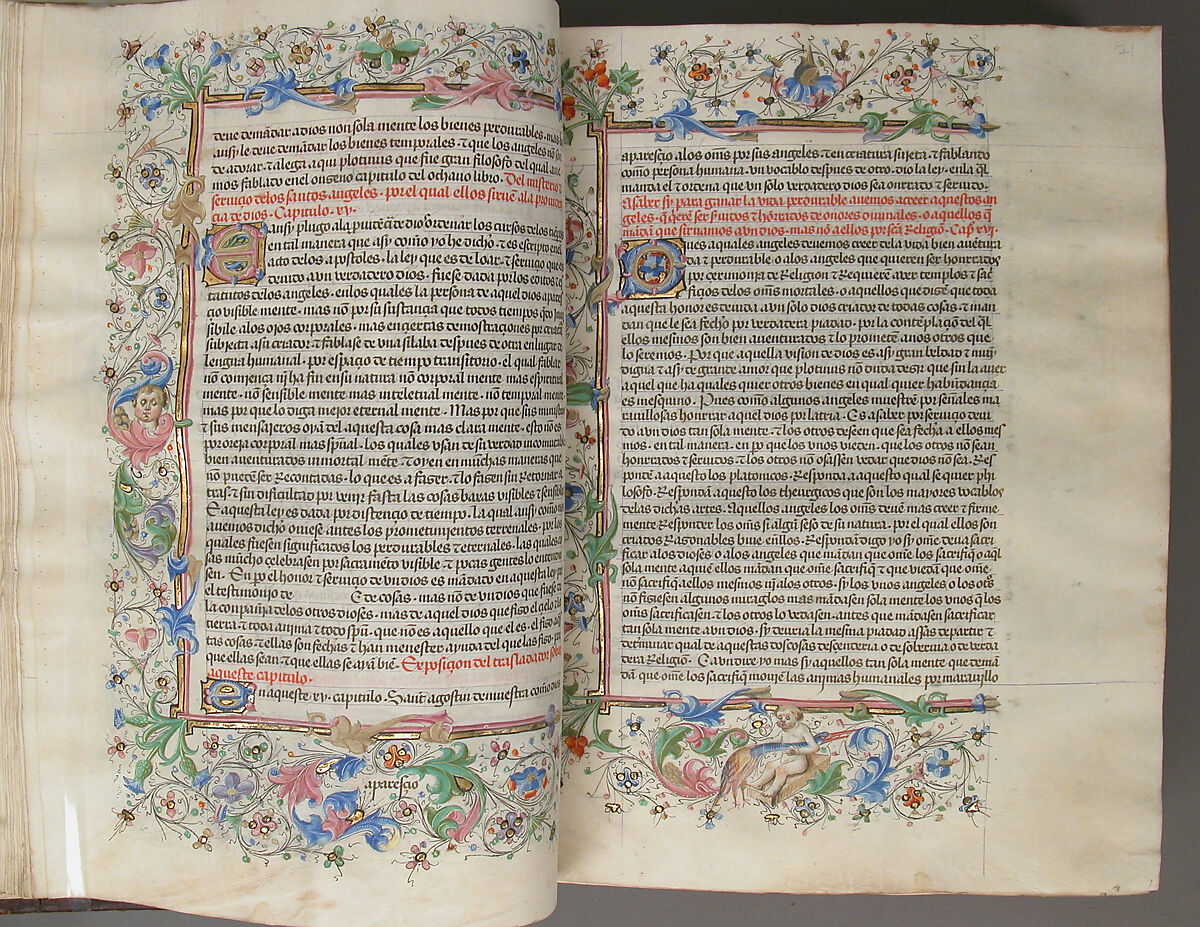 deue demãdar a dios non sola mente los bienes perdurables. mas
ansy le deue demandar los bienes temporales. ⁊ que los angeles nõ
de adorar. ⁊ alega aqui plotinus que fue gran filosofo del qual aue
mos fablado en el onzeno capitulo del ochauo libro. Del misterio
seruiçio delos santos angeles. por el qual ellos siruẽ ala prouidẽ
çia de dios. Capitulo. xv.
ansy plugo ala puidẽçia de dios ordenar los cursos delos tiẽpos
en tal manera que asy como yo he dicho. ⁊ es escripto enel
acto delos apostoles. la ley que es de loar. ⁊ seruiçio que es
deuido a vn verdadero dios. fuese dada por los editos ⁊
tatutos delos angeles. enlos quales la persona de aquel dios apares
çio visible mente. mas nõ por su sustançia que todos tiempos
sibile alos ojos corporales. mas en çiertas demostraçiones por criatura
subjeta asu criador. ⁊ fablase de vna silaba despues de otra en lugar de
lengua humanal. por espaçio de tiempo transitorio. el qual fablar
nõ comiença nj ha fin en su natura nõ corporal mente. mas espiritual
mente. nõ sensible mente mas inteletual mente. nõ temporal mente
mas por que lo diga mejor eternal mente. Mas por que sus ministros
⁊ sus mensajeros oyan del aquesta cosa mas clara mente. esto nõ es
por oreja corporal mas spũal. los quales vsan de su verdad incomutable
bien auenturados inmortal mẽte. ⁊ oyen en muchas maneras que
nõ pueden ser Recontadas. lo que es a fazer. ⁊ lo fazen sin Retornar
tras. ⁊ sin dificultad por venir fasta las cosas baxas visibles ⁊ sensibles
E aquesta ley es dada por distençio de tiempo. la qual ansy como nos
auemos dicho ouiese antes los prometimientos terrenales. por los
quales fuesen significados los perdurables ⁊ eternales. las quales
sas mucho celebrasen por sacramẽto visible ⁊ pocas gentes lo entendie
sen. En pero el honor ⁊ seruiçio de vn dios es mãdado en aquesta ley por
el testimonjo de E de cosas. mas nõ de vn dios que fuese
la conpañia delos otros dioses. mas de aquel dios que fizo el çielo ⁊ la
tierra. ⁊ toda anima ⁊ todo spũ. que nõ es aquello que el es. el fizo aques
tas cosas. ⁊ ellas son fechas ⁊ han menester ayuda del que las fizo. por
que ellas sean. ⁊ que ellas se ayan biẽ. Esposiçion del trasladador sobre
aqueste capitulo.
En aqueste xv. capitulo. Sant agostin demuestra como dios
aparesçio
21
aparesçio alos om̃s por sus angeles. ⁊ en criatura sujeta. ⁊ fablando
como persona humana. vn vocablo despues de otro. dio la ley. enla q̃l
manda el ⁊ ordena que vn solo verdadero dios sea onrrado ⁊ seruido.
Asaber sy para ganar la vida perdurable auemos a creer aquestos an
geles. q̃ q̃erẽ ser seruidos ⁊ honrrados de onores diuinales. o aquellos q̃
mãdã que siruamos a vn dios. mas nõ a ellos por sãta Religiõ. Capº xvi.
Pues a quales angeles deuemos creer dela vida bien auentura
da ⁊ perdurable. o alos angeles que quieren ser honrrados
por çerimonja de Religion ⁊ Requierẽ aver templos ⁊ sac
fiçios delos om̃s mortales. o aquellos que dizẽ que toda
aquesta honor es deuida a vn solo dios criador de todas cosas. ⁊ man
dan que le sea fecho por verdadera piadad. por la contẽplaçõ del q̃l
ellos mesmos son bien auenturados ⁊ lo prometẽ a nos otros que
lo seremos. Por que aquella vision de dios es asy gran beldad ⁊ muy
digna ⁊ asy de grande amor que plotinus nõ duda dezir que sin la aver
aquel que ha quales quier otros bienes en qual quier habundançia
es mesquino. Pues como algunos angeles muestrẽ por señales ma
rauillosas honrrar aquel dios por latria. Es asaber por seruiçio deui
do a vn dios tan sola mente. ⁊ los otros deseen que sea fecha a ellos mes
mos. en tal manera. en po que los vnos vieden. que los otros nõ sean
honrrados ⁊ seruidos. ⁊ los otros nõ osassen vedar que dios nõ sea. Res
pondã a aquesto los platonicos. Responda a aquesto qual se quier phi
losofo. Respondã aquesto los theurgicos que son los mayores vocablos
delas dichas artes. Aquellos angeles los om̃s deuẽ mas creer ⁊ firme
mente Responder los om̃s si algũ seso de su natura. por el qual ellos son
criados Razonables biue en ellos. Responda digo yo sy om̃e deua sacri
ficar alos dioses o alos angeles que mãdan que om̃e los sacrifiq̃ o aq̃l
sola mente aquiẽ ellos mãdan que om̃e sacrifiq̃ ⁊ que viedã que om̃e
nõ sacrifiq̃ a ellos mesmos nj alos otros. sy los vnos angeles o los ots̃
nõ fiziesen algunos miraglos mas mãdasen sola mente los vnos q̃ los
om̃s sacrificasen. ⁊ los otros lo vedasen. antes que mãdasen sacrificar
tan sola mente a vn dios. sy deuria la mesma piadad assas departir ⁊
determinar qual de aquestas dos cosas desçenderia. o de soberuia o de verda
dera Religiõ. E avn dire yo mas sy aquellos tan sola mente que demã
dã que om̃e los sacrifiq̃ mouiẽ las animas humanales por marauillo